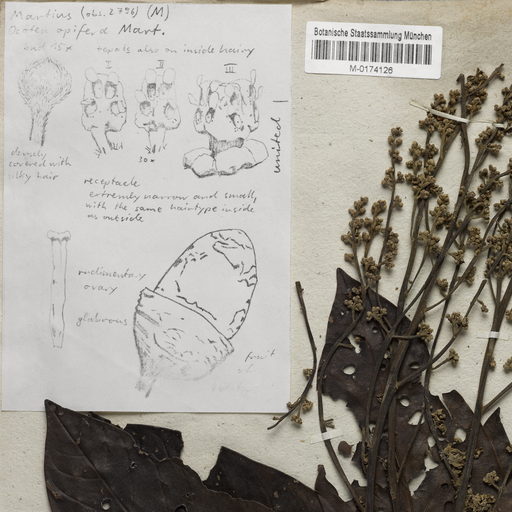 Martius (obs. 2796) (M)
Ocotea opifera Mart.
bud 15x tepals also on inside hairy
I II III
densely
covered with
silky hair
30x
united
receptacle
extremely narrow and small,
with the same hairtype inside
as outside
rudimentary
ovary
glabrous
fruit
Botanische Staatssammlung München
M-0174126